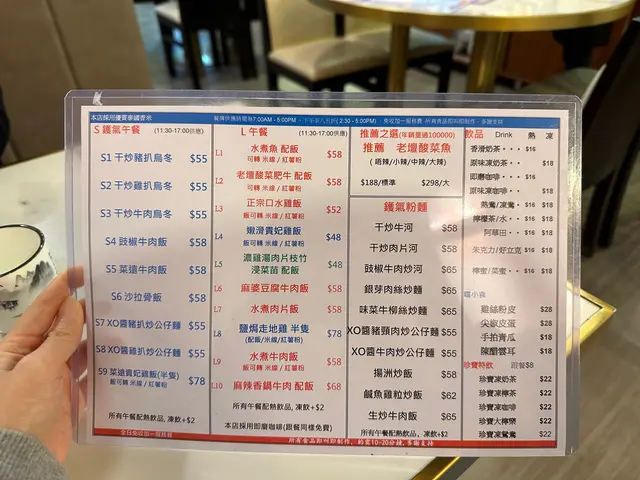 本店採用優質泰國香米
餐牌供應時間為7:00AM - 5:00PM，下午茶八五折(2:30 - 5:00PM)
免收加一服務費 所有食品即叫即制作，多謝支持
S 鑊氣午餐 (11:30-17:00供應)
S1 干炒豬扒烏冬 $55
S2 干炒雞扒烏冬 $55
S3 干炒牛肉烏冬 $55
S4 豉椒牛肉飯 $58
S5 菜遠牛肉飯 $58
S6 沙拉骨飯 $58
S7 XO醬豬扒炒公仔麵 $55
S8 XO醬雞扒炒公仔麵 $55
S9 菜遠貴妃雞飯(半隻) $78
飯可轉 米線 / 紅薯粉
所有午餐配熱飲品, 凍飲+$2
全日免收加一服務費
L 午餐 (11:30-17:00供應)
L1 水煮魚 配飯 $58
可轉 米線 / 紅薯粉
L2 老壇酸菜肥牛 配飯 $58
可轉 米線 / 紅薯粉
L3 正宗口水雞飯 $52
飯可轉 米線 / 紅薯粉
L4 嫩滑貴妃雞飯 $48
飯可轉 米線 / 紅薯粉
L5 濃雞湯肉片枝竹
浸菜苗 配飯 $48
L6 麻婆豆腐牛肉飯 $58
L7 水煮肉片飯 $58
L8 鹽焗走地雞 半隻 $78
(配飯/米線/紅薯粉)
L9 水煮牛肉飯 $58
飯可轉 米線 / 紅薯粉
L10 麻辣香鍋牛肉 配飯 $68
所有午餐配熱飲品, 凍飲+$2
本店採用即磨咖啡(跟餐同樣免費)
推薦之選(年銷量過100000)
推薦 老壇酸菜魚
(唔辣/小辣/中辣/大辣)
$188/標準 $298/大
鑊氣粉麵
干炒牛河 $58
干炒肉片河 $58
豉椒牛肉炒河 $65
銀芽肉絲炒麵 $65
味菜牛柳絲炒麵 $65
XO醬豬頸肉炒公仔麵 $55
XO醬牛肉炒公仔麵 $55
揚洲炒飯 $58
鹹魚雞粒炒飯 $62
生炒牛肉飯 $65
所有午餐配熱飲品, 凍飲+$2
飲品 Drink 熱 凍
香滑奶茶 $16
原味凍奶茶 $18
即磨咖啡 $16
原味凍咖啡 $18
熱鴛/凍鴛 $16 $18
檸檬茶/水 $16 $18
阿華田 $16 $18
朱克力/好立克 $16 $18
檸蜜/菜蜜 $16 $18
雞絲粉皮 $28
尖椒皮蛋 $28
手拍青瓜 $18
陳醋雲耳 $18
珍寶特飲 跟餐$8
珍寶凍奶茶 $22
珍寶凍檸茶 $22
珍寶凍咖啡 $22
珍寶大檸樂 $22
珍寶凍鴛鴦 $22
所有食品即叫即制作，約需10-20分鐘,多謝支持